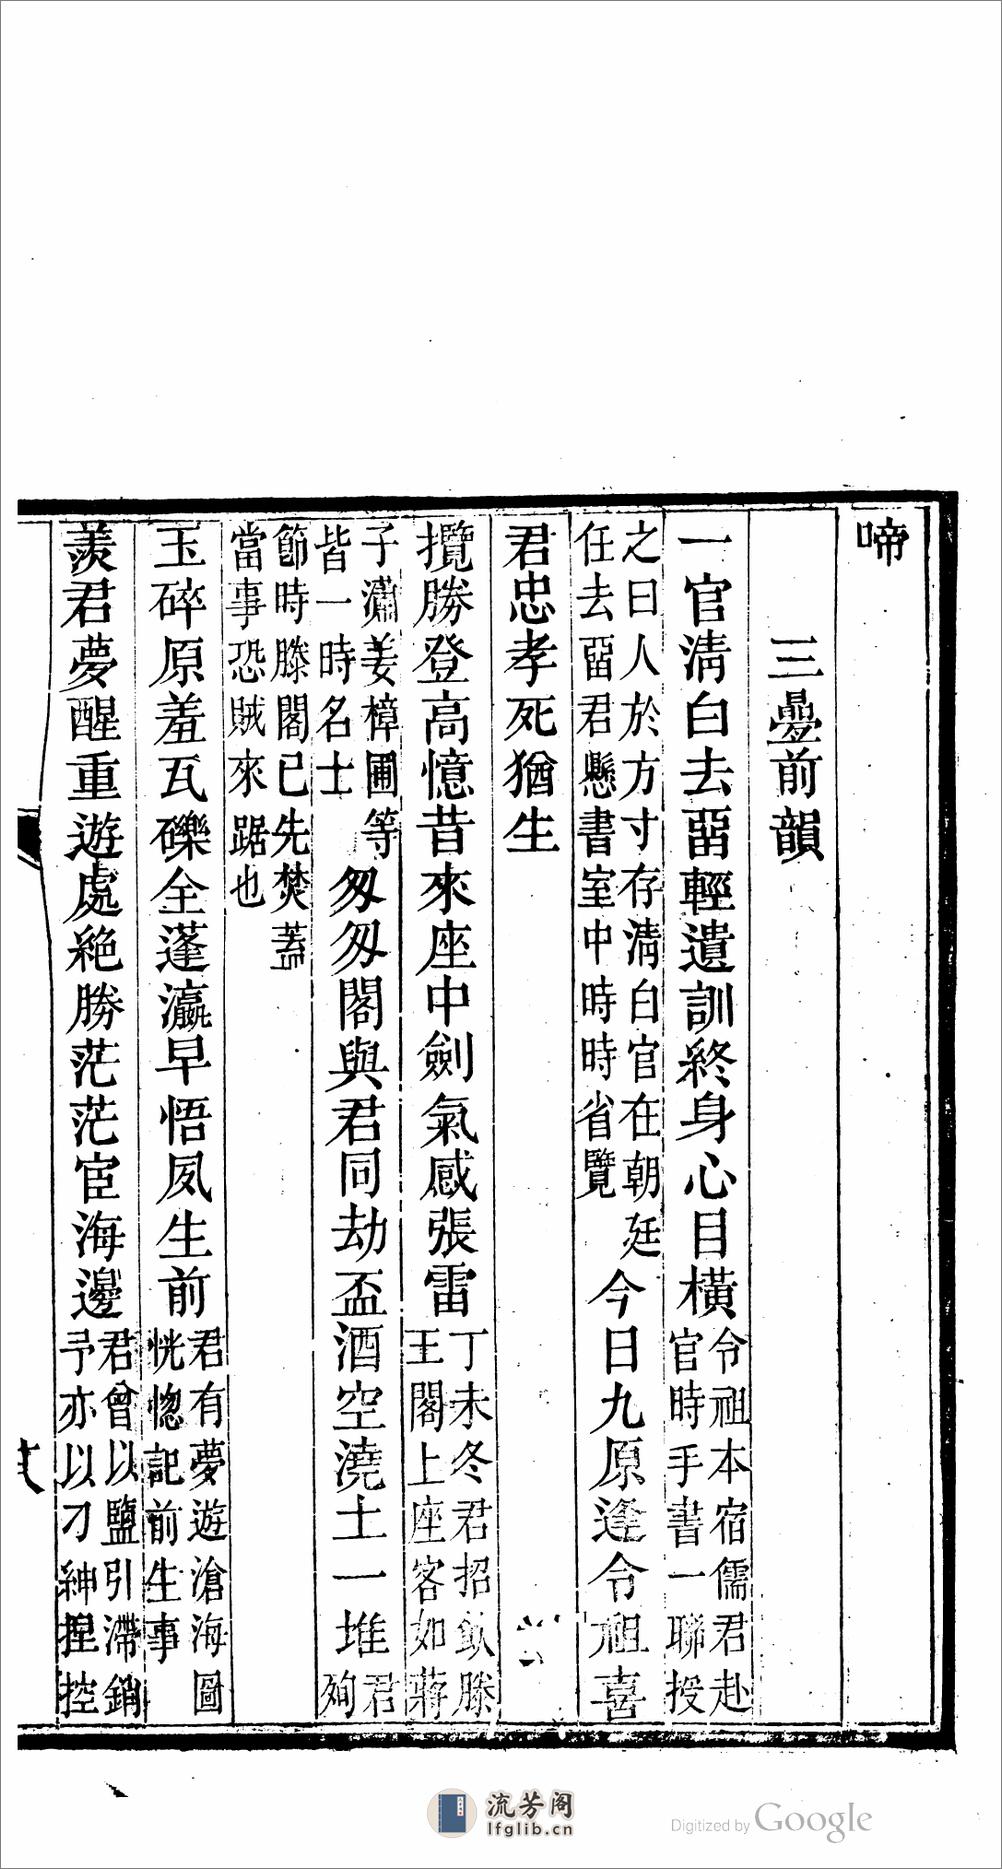 啼
三曡前韻
一官淸白去畱輕遺訓終身心目橫令祖本宿儒君赴官時手書一聯授
之曰人於方寸存淸白官在朝廷任去畱君懸書室中時時省覽今日九原逢令祖喜
君忠孝死猶生
攬勝登高憶昔來座中劍氣感張雷丁未冬君招飮滕王閣上座客如蔣
子瀟姜樟圃等皆一時名士匆匆閣與君同劫盃酒空澆土一堆君殉
節時滕閣已先焚蓋當事恐賊來踞也
玉碎原羞瓦礫全蓬瀛早悟夙生前君有夢遊滄海圖恍惚記前生事
羨君夢醒重遊處絶勝茫茫宦海邊君曾以鹽引滯銷予亦以刁紳捏控
流芳阁
lfglib.cn
Digitized by Google